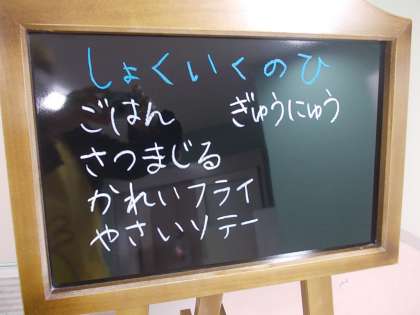 しょくいくのひ
ごはん　ぎゅうにゅう
さつまじる
かれいフライ
やさいソテー